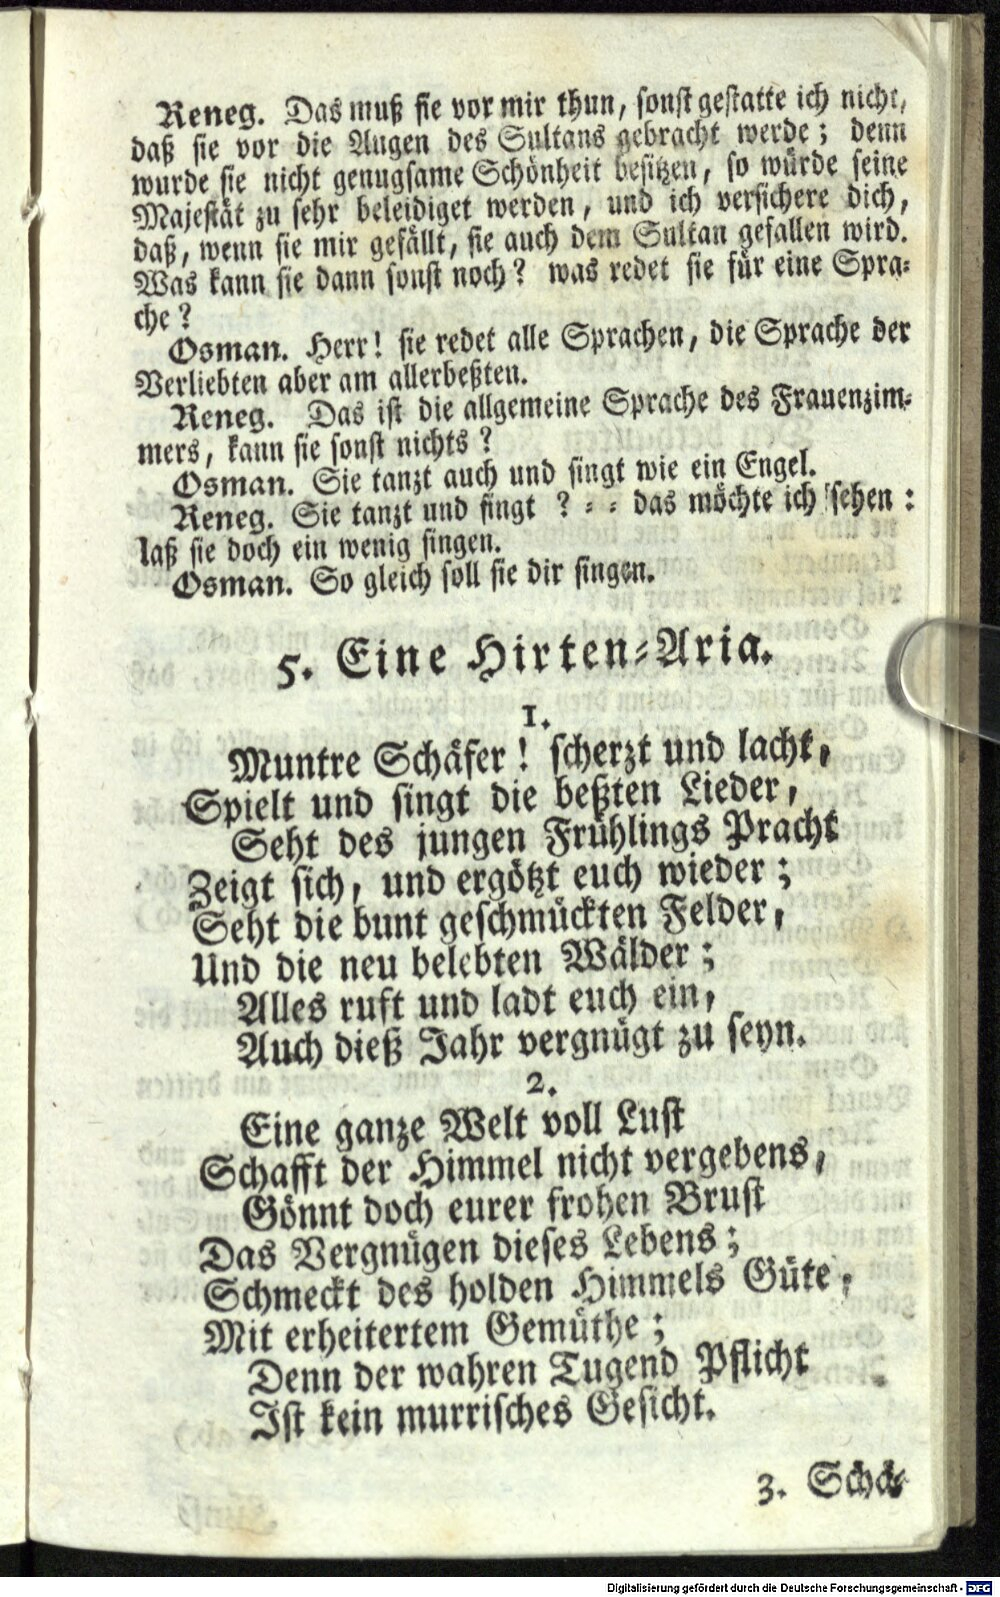 Reneg. Das muß sie vor mir thun, sonst gestatte ich nicht,
daß sie vor die Augen des Sultans gebracht werde; denn
wurde sie nicht genugsame Schönheit besitzen, so würde seine
Majestät zu sehr beleidiget werden, und ich versichere dich,
daß, wenn sie mir gefällt, sie auch dem Sultan gefallen wird.
Was kann sie dann sonst noch? was redet sie für eine Spra⸗
che?
Osman. Herr! sie redet alle Sprachen, die Sprache der
Verliebten aber am allerbeßten.
Reneg. Das ist die allgemeine Sprache des Frauenzim⸗
mers, kann sie sonst nichts?
Osman. Sie tanzt auch und singt wie ein Engel.
Reneg. Sie tanzt und singt ? ⸗ ⸗ das möchte ich sehen:
laß sie doch ein wenig singen.
Osman. So gleich soll sie dir singen.
5. Eine Hirten⸗Aria.
1.
Muntre Schäfer! scherzt und lacht,
Spielt und singt die beßten Lieder,
Seht des jungen Frühlings Pracht
Zeigt sich, und ergötzt euch wieder;
Seht die bunt geschmückten Felder,
Und die neu belebten Wälder;
Alles ruft und ladt euch ein,
Auch dieß Jahr vergnügt zu seyn.
2.
Eine ganze Welt voll Lust
Schafft der Himmel nicht vergebens,
Gönnt doch eurer frohen Brust
Das Vergnügen dieses Lebens;
Schmeckt des holden Himmels Güte,
Mit erheitertem Gemüthe;
Denn der wahren Tugend Pflicht
Ist kein murrisches Gesicht.
3. Schä⸗
Digitalisierung gefördert durch die Deutsche Forschungsgemeinschaft - DFG